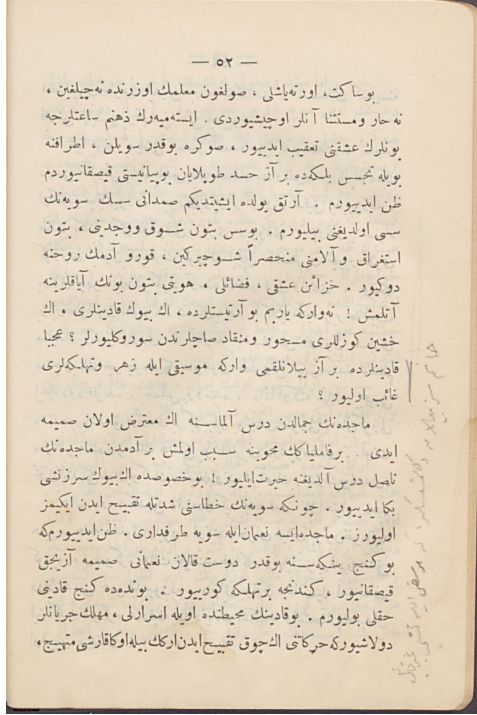 — ٥٢ —
بوساكت، اورته‌ياشلى ، صولغون معلمك اوزرنده نه‌چيلغين ،
نه حار ومستثنا آنلر اوچيشيوردى . ايسته‌ميه‌رك ذهنم ساعتلرجه
بونلرك عشقنى تعقيب ايدييور ، صوكره بوقدر سويلن ، اطرافنه
بويله تجسس بلكه‌ده بر آز حسد طوپلايان بوپيانيستى قيصقانيوردم
ظن ايدييورم . آرتق يولده ايشيتديكم صمدانى سسك سويه‌نك
سسى اولديغنى بيليورم . بوسس بتون شوق ووجدينى ، بتون
استغراق وآلامنى منحصراً شو چيركين ، قورو آدمك روحنه
دوكيور . خزائن عشقى ، فضائلى ، هويتى بتون بونك آياقلرينه
آتلمش ! نه‌واركه ياربم بو آرتيستلرده ، اك بيوك قادينلرى ، اك
خشين كوزللرى مسحور ومنقاد صاچلرندن سوروكليورلر ؟ عجبا
قادينلرده بر آز ييلانلقمى واركه موسيقى ايله زهر وتهلكه‌لرى
غائب اوليور ؟
ماجده‌نك جمالدن درس آلماسنه اك معترض اولان صميمه
ايدى . برفاميلياكك محوينه سبب اولمش برآدمدن ماجده‌نك
ناصل درس آلديغنه حيرت‌ايليور ! بوخصوصده اك بيوك سرزنشى
بكا ايدييور . چونكه سويه‌نك خطاسنى شدتله تقبيح ايدن ايكيمز
اوليورز . ماجده‌ايسه نعمان‌ايله سويه طرفدارى . ظن‌ايدييورم‌كه
بو كنج ينكه‌سنه بوقدر دوست قالان نعمانى صميمه آزيجق
قيصقانيور ، كندنجه برتهلكه كورييور . بونده‌ده كنج قادينى
حقلى بوليورم . بوقادينك محيطنده اويله اسرارلى ، مهلك جريانلر
دولاشيوركه حركاتنى اك چوق تقبيح ايدن اركك بيله اوكا قارشى متهيج ،